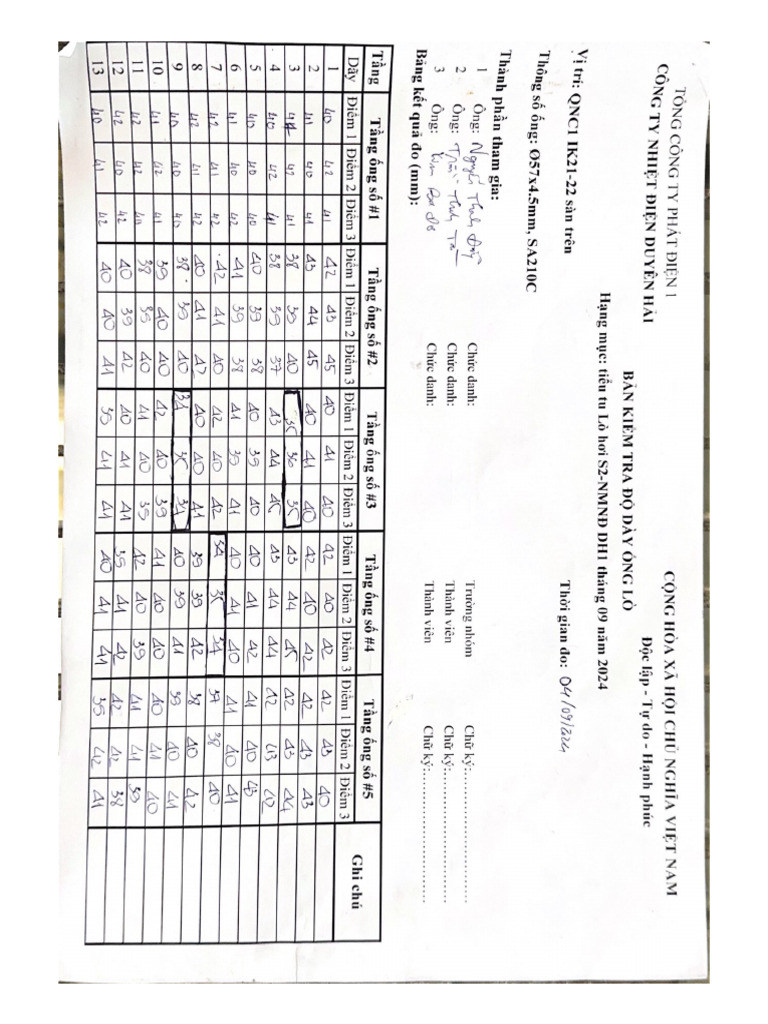 TỔNG CÔNG TY PHÁT ĐIỆN 1 CỘNG HÒA XÃ HỘI CHỦ NGHĨA VIỆT NAM
CÔNG TY NHIỆT ĐIỆN DUYÊN HẢI Độc lập - Tự do - Hạnh phúc
BẢN KIỂM TRA ĐỘ DÀY ỐNG LÒ
Hạng mục: tiểu tu Lò hơi S2-NMNĐ DH1 tháng 09 năm 2024
Vị trí: QNC1 IK21-22 sàn trên Thời gian đo: 04/09/2024
Thông số ống: Ø57x4.5mm, SA210C
Thành phần tham gia:
1 Ông: Nguyễn Thanh Chức danh: Trưởng nhóm Chữ ký:....................
2 Ông: Trần Chức danh: Thành viên Chữ ký:....................
3 Ông: Kim Chức danh: Thành viên Chữ ký:....................
Bảng kết quả đo (mm):
Tầng Tầng ống số #1 Tầng ống số #2 Tầng ống số #3 Tầng ống số #4 Tầng ống số #5 Ghi chú
Dãy Điểm 1 Điểm 2 Điểm 3 Điểm 1 Điểm 2 Điểm 3 Điểm 1 Điểm 2 Điểm 3 Điểm 1 Điểm 2 Điểm 3 Điểm 1 Điểm 2 Điểm 3
1 40 42 41 42 43 45 40 41 40 42 40 42 42 43 40
2 41 40 41 43 44 45 40 41 40 42 40 42 42 43 43
3 42 42 41 38 39 40 35 36 35 43 44 45 42 43 44
4 40 42 41 38 39 37 43 44 45 43 44 44 42 43 42
5 40 40 40 40 39 39 40 39 40 40 41 42 41 40 43
6 41 40 42 41 39 38 41 39 41 40 41 40 41 40 41
7 42 41 42 42 41 40 42 40 42 34 35 34 37 38 40
8 42 41 42 40 41 42 40 40 41 39 39 42 38 40 42
9 40 40 40 38 39 40 34 35 34 40 39 41 39 40 41
10 41 42 41 39 40 40 42 40 39 41 40 40 40 41 40
11 42 42 40 38 39 40 41 40 39 42 40 39 41 41 39
12 42 40 42 40 39 42 40 41 41 39 41 42 42 42 38
13 40 41 42 40 40 41 39 41 41 40 41 41 39 42 41